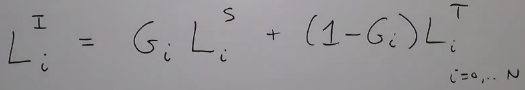 L_i^I = G_i L_i^S + (1-G_i) L_i^T i=0,.. N